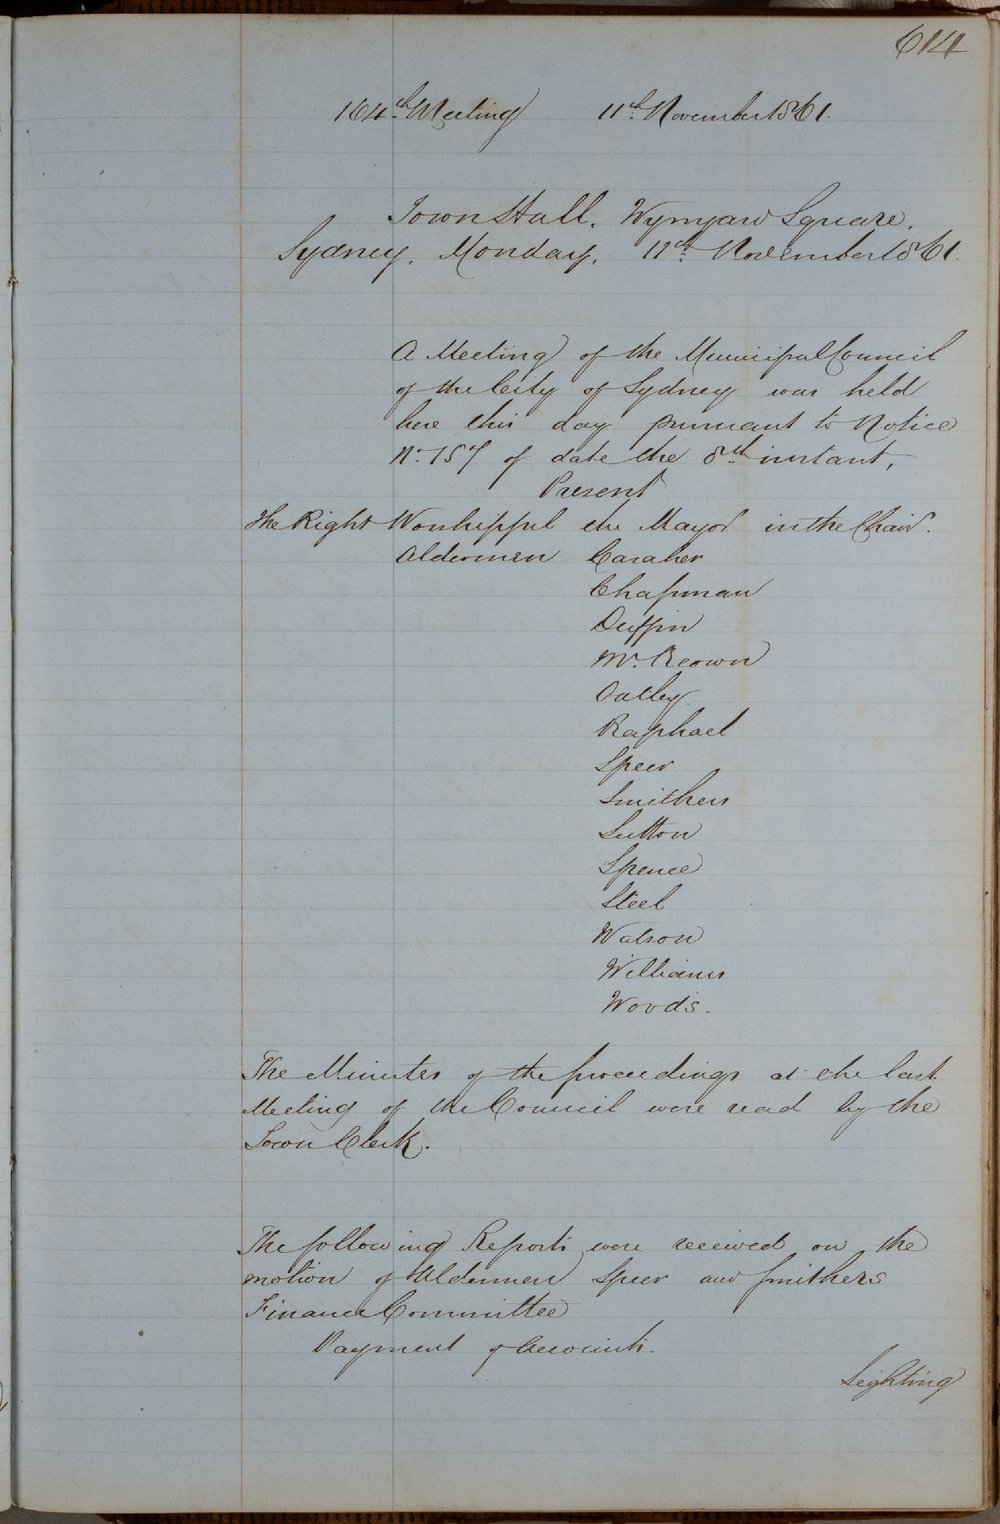 614
164th Meeting 11th November 1861.
Town Hall, Wynyard Square,
Sydney, Monday, 11th November 1861.
A Meeting of the Municipal Council
of the City of Sydney was held
here this day pursuant to Notice
No. 157 of date the 8th instant,
Present
The Right Worshipful the Mayor in the Chair.
Aldermen Caraher
Chapman
Duffin
Mc.Keown
Oatley
Raphael
Speer
Smithers
Sutton
Spence
Steel
Watson
Williams
Woods.
The Minutes of the proceedings at the last
Meeting of the Council were read by the
Town Clerk.
The following Reports were received on the
motion of Aldermen Speer and Smithers
Finance Committee
Payment of Accounts.
Lighting